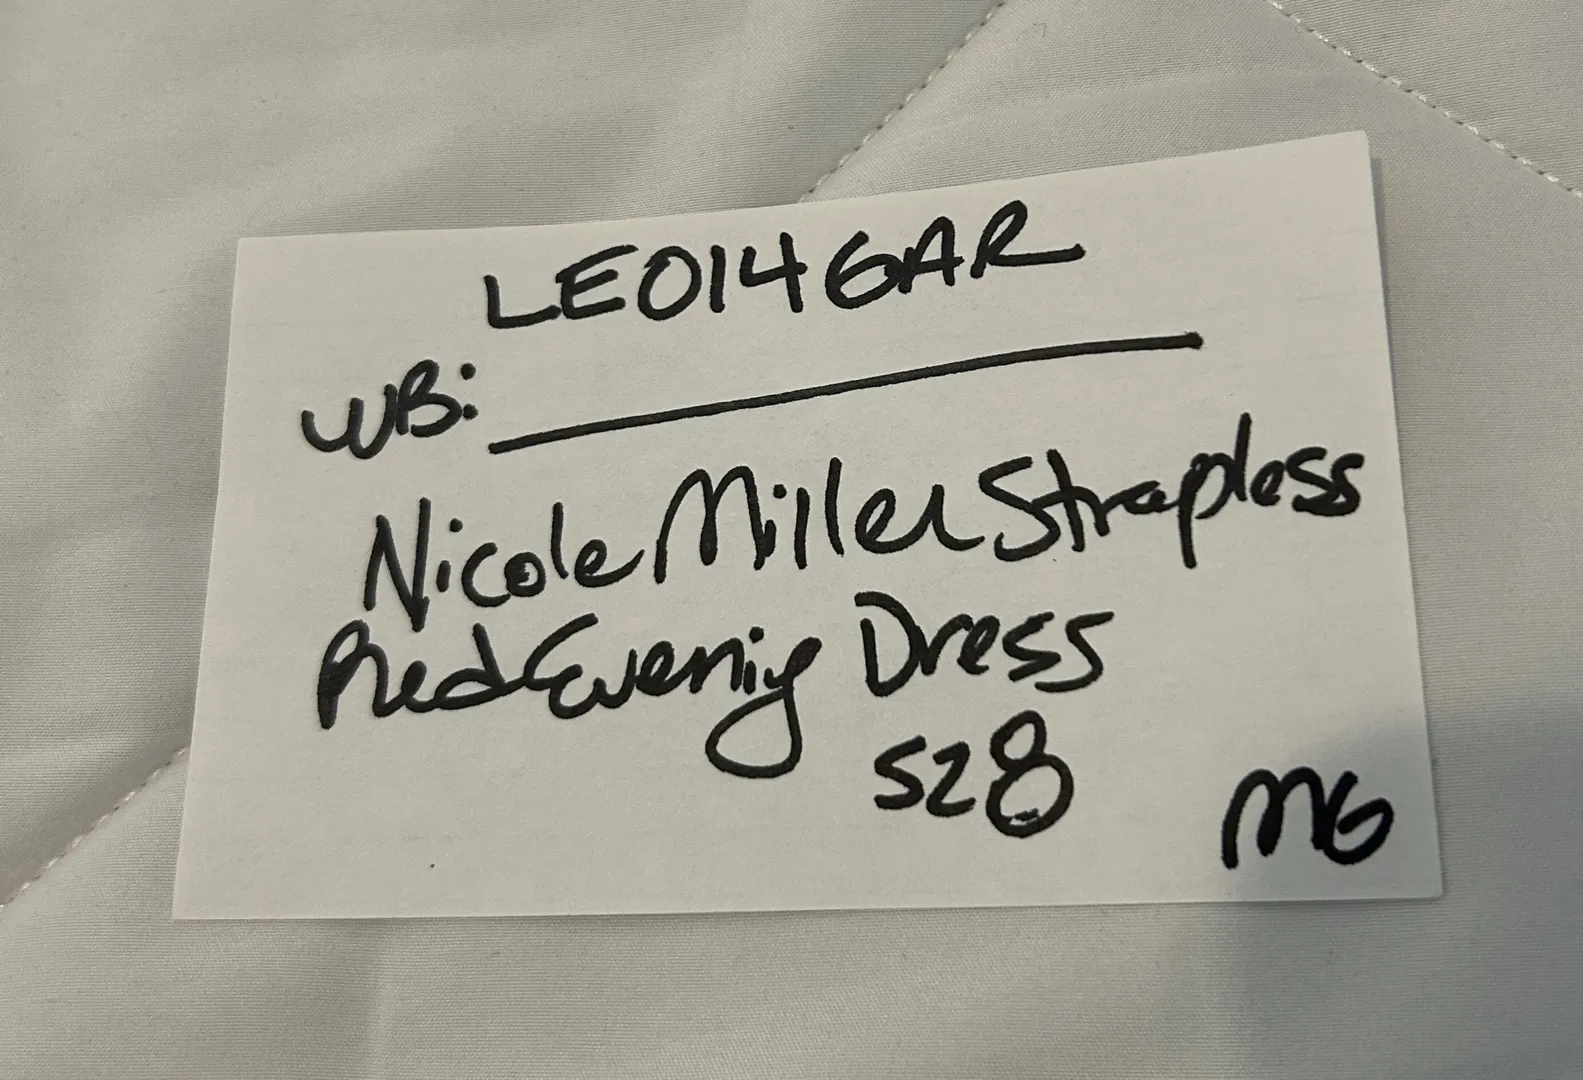 LE0146AR
WB: ____________
Nicole Miller Strapless
Red Evening Dress
SZ8
MG